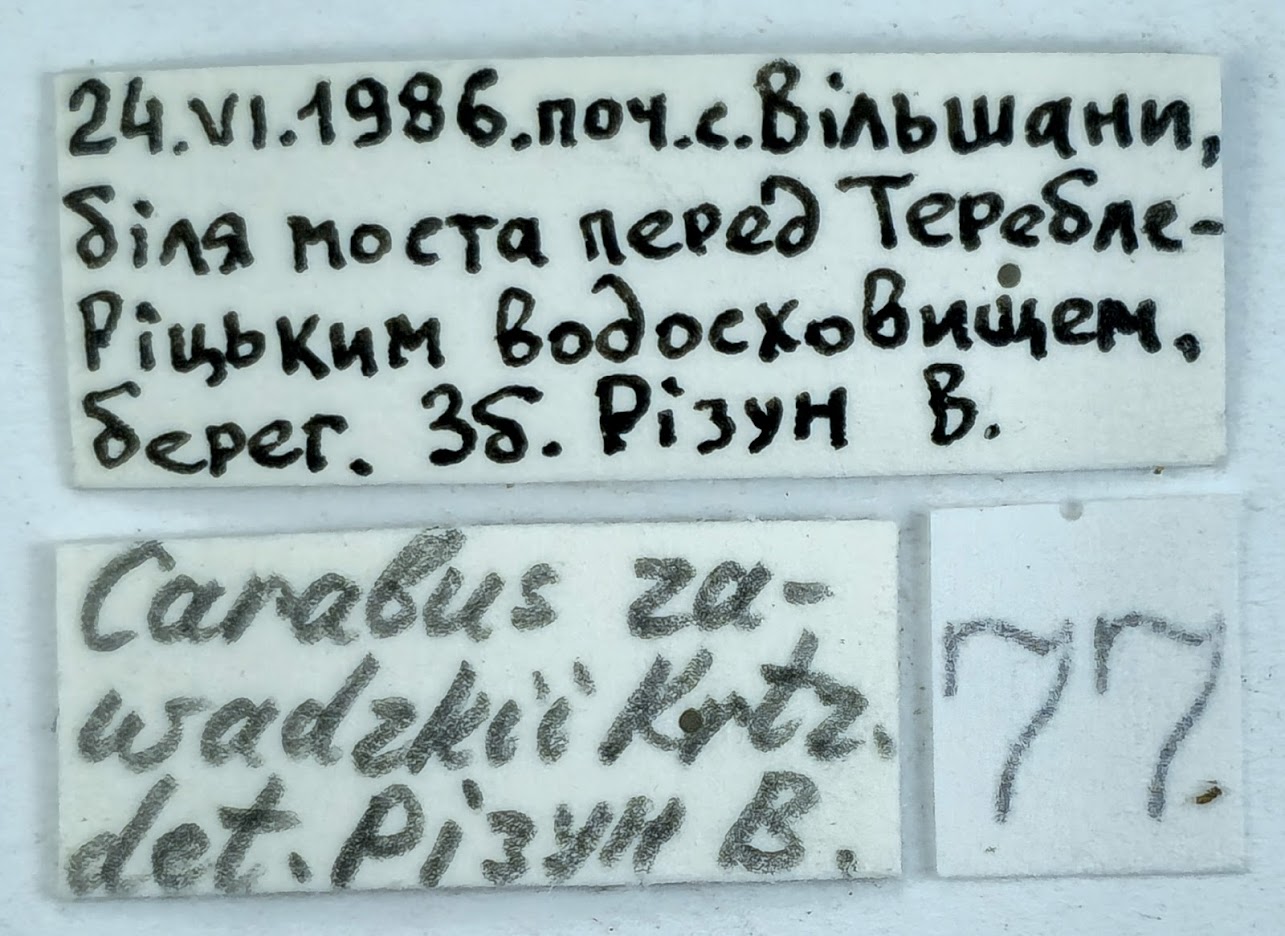 24.VI.1986.поч.с.Вільшани,
біля моста перед Теребле-
Ріцьким водосховищем,
берег. Зб. Різун В.
Carabus za-
wadzkii Krtz.
det. Різун В.
77